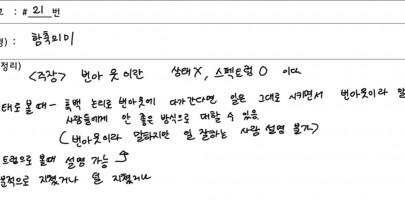 : #21 번
) : 함축의미
정리)
<주장> 번아웃이란 상태X, 스펙트럼O 이다
태로 볼때 - 흑백 논리로 번아웃에 다가간다면 일은 그대로 시키면서 번아웃이라 말
사람들에게 안 좋은 방식으로 대할 수 있음
(번아웃이라 말하지만 일 잘하는 사람 설명 불가)
트럼으로 볼때 설명 가능
분적으로 지쳤거나 덜 지쳤거나